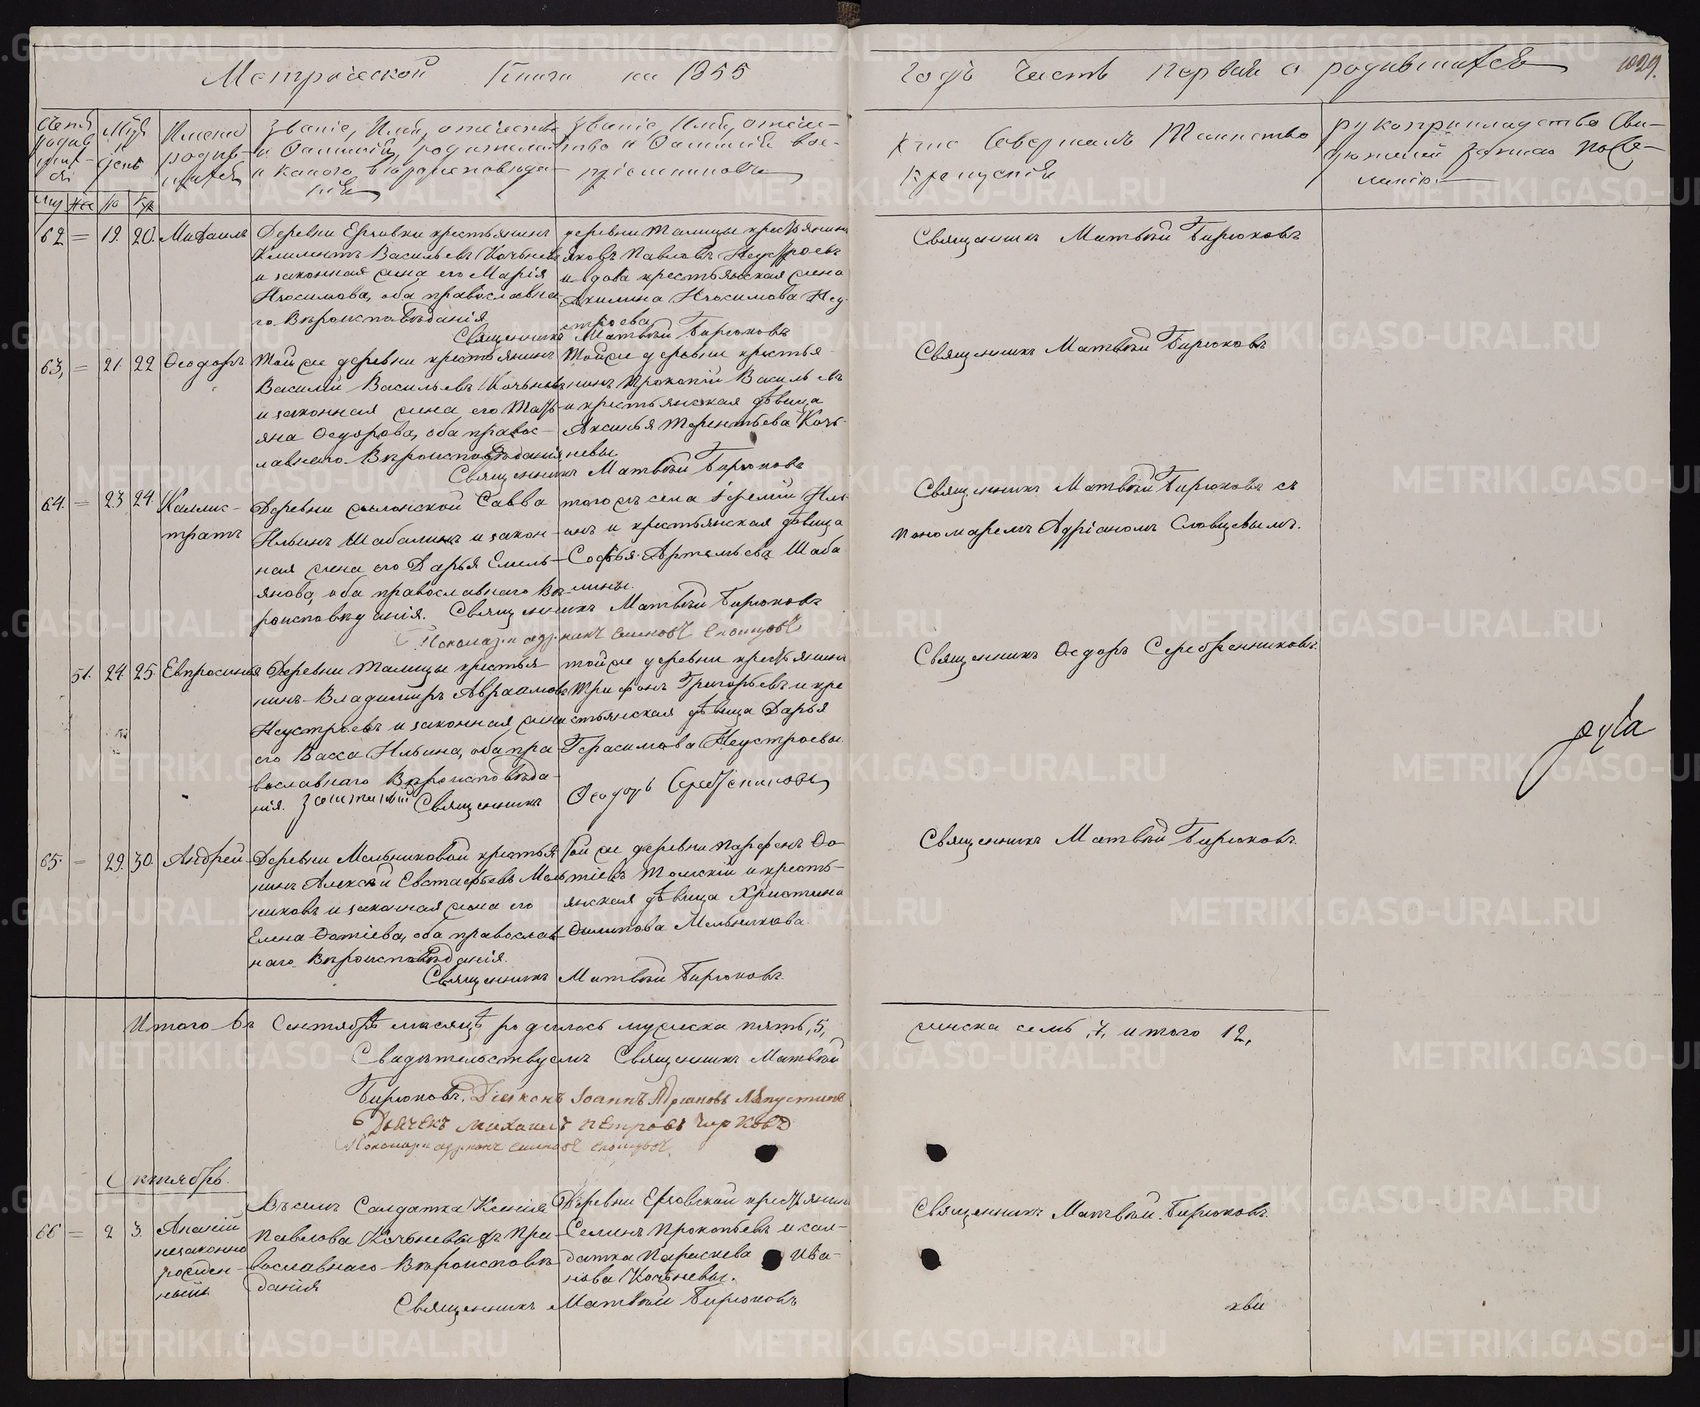 Метрической Книги на 1855
годъ часть первая о родившихся
1029.
Счетъ родив-шихся
Мѣс. День
Имена родив-шихся
Званіе, Имя, отчество и Фамилія родителей и какого вѣроисповѣда-нія
Званіе, Имя, отчес-тво и Фамилія вос-пріемниковъ
Кто совершалъ Таинство Крещенія
Рукоприкладство Сви-
дѣтелей записи по же-
ланію.
62 — 19. 20. Михаилъ
Деревни Ерзовки крестьянинъ
Климентъ Васильевъ Кочьневъ
и законная жена его Марія
Изосимова, оба православна-
го Вѣроисповѣданія
деревни Талицы крестьянинъ
Яковъ Павловъ Неустроевъ
и вдова крестьянская жена
Акилина Изосимова Неу-
строева
Священникъ Матвѣй Бирюковъ
Священникъ Матвѣй Бирюковъ
63, — 21 22 Ѳеодоръ
Той же деревни крестьянинъ
Василій Васильевъ Кочьневъ
и законная жена его Тать-
яна Ѳедорова, оба правос-
лавнаго Вѣроисповѣданія
Той же деревни крестья-
нинъ Прокопій Васильевъ
и крестьянская дѣвица
Аксинья Терентьева Кочь-
невы
Священникъ Матвѣй Бирюковъ
Священникъ Матвѣй Бирюковъ
64. — 23 24 Каллис-
тратъ
Деревни Савва
Ильинъ Шабалинъ и закон-
ная жена его Дарья Емель-
янова, оба православнаго Вѣ-
роисповѣданія.
тогожъ села Иль-
инъ и крестьянская дѣвица
Софья Артемьева Шаба-
лины.
Священникъ Матвѣй Бирюковъ
Пономарь
Священникъ Матвѣй Бирюковъ съ
пономаремъ Адріаномъ Словцевымъ.
51. 24 25 Евпросинья
Деревни Талицы крестья-
нинъ Владимиръ Авраамовъ
Неустроевъ и законная жена
его Васса Ильина, оба пра-
вославнаго Вѣроисповѣда-
нія.
той же деревни крестьянинъ
Трифонъ Григорьевъ и кре-
стьянская дѣвица Дарья
Герасимова Неустроевы.
Священникъ Ѳеодоръ Серебренниковъ
Священникъ Ѳедоръ Серебренниковъ.
65. — 29. 30. Андрей
Деревни Мельниковой крестья-
нинъ Алексѣй Евстафьевъ Мель-
никовъ и законная жена его
Елена Фотіева, оба православ-
наго Вѣроисповѣданія.
Той же деревни Парфенъ Фо-
тіевъ Томскій и кресть-
янская дѣвица Христина
Филипова Мельникова.
Священникъ Матвѣй Бирюковъ.
Священникъ Матвѣй Бирюковъ.
Итого въ Сентябрѣ мѣсяцѣ родилось мужеска пять, 5,
женска семь, 7, итого 12,
Свидѣтельствуемъ Священникъ Матвѣй
Бирюковъ. Діаконъ Іоаннъ Ляпустинъ
Дьячекъ Михаилъ Петровъ
Пономарь
Октябрь.
66 — 2 3. Ананій
незаконно
рожден-
ный
Вѣжъ Солдатка Ксенія
Павлова Кочьневыхъ Пра-
вославнаго Вѣроисповѣ-
данія
Деревни Ерзовской крестьянинъ
Прокопьевъ и сол-
датка Параскева Ива-
нова Кочьневы.
Священникъ Матвѣй Бирюковъ
Священникъ Матвѣй Бирюковъ.
METRIKI.GASO-URAL.RU